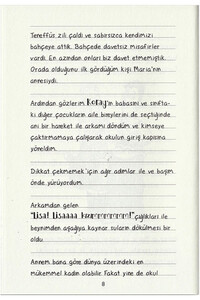 Tereffüs zili çaldı ve sabırsızca kendimizi
bahçeye attık. Bahçede davetsiz misafirler
vardı. En azından onları biz davet etmemiştik.
Orada olduğunu ilk gördüğüm kişi Maria'nın
annesiydi.
Ardından gözlerim Koray'ın babasını ve sınıfta-
ki diğer çocukların aile bireylerini de seçtiğinde
ani bir hareket ile arkamı döndüm ve kimseye
çaktırmamaya çalışarak okulun giriş kapısına
yöneldim.
Dikkat çekmemek için ağır adımlar ile ve başım
önde yürüyordum.
Arkamdan gelen
"Lisa! Lisaaaa
çığlıkları ile
beynimden aşağıya kaynar suların dökülmesi bir
oldu.
Annem bana göre dünya üzerindeki en
mükemmel kadın olabilir. Fakat yine de okul
8